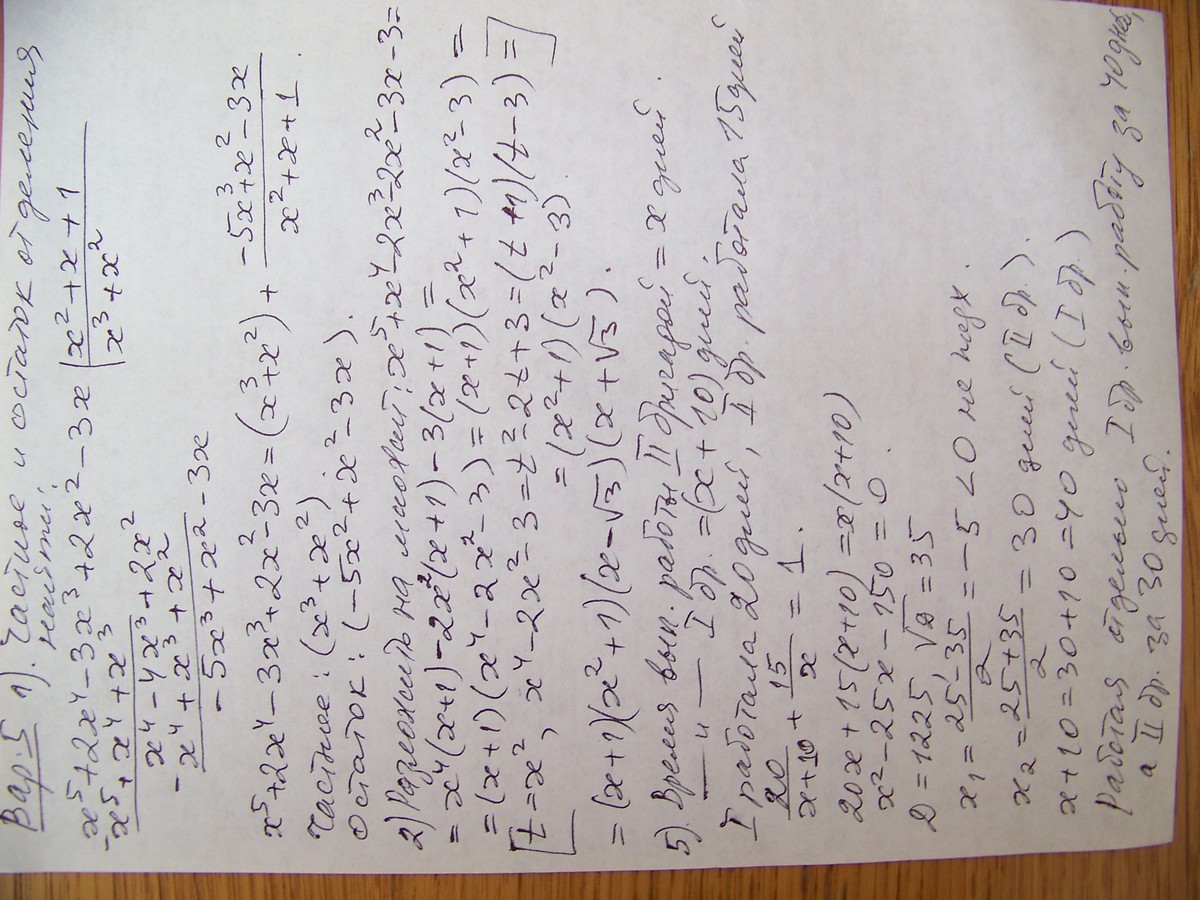 Вар. 5 1). Частное и остаток от деления
найти:
-x⁵+2x⁴-3x³+2x²-3x |x²+x+1
x⁵+x⁴+x³ x³+x²
x⁴-4x³+2x²
-x⁴+x³+x²
-5x³+x²-3x
x⁵+2x⁴-3x³+2x²-3x=(x³+x²)+ (-5x³+x²-3x)/(x²+x+1).
Частное: (x³+x²)
Остаток: (-5x²+x²-3x).
2) Разложить на множит: x⁵+x⁴-2x³-2x²-3x-3=
=x⁴(x+1)-2x²(x+1)-3(x+1)=
=(x+1)(x⁴-2x²-3)=(x+1)(x²+1)(x²-3)=
[t=x², x⁴-2x²-3=t²-2t+3=(t+1)(t-3)=]
=(x²+1)(x²-3).
=(x+1)(x²+1)(x-√3)(x+√3).
5). Время вып. работы II бригадой = x дней.
— и — I бр. =(x+10) дней.
I работала 20 дней, II бр. работала 15 дней
20/(x+10) + 15/x = 1.
20x+15(x+10)=x(x+10)
x²-25x-150=0.
D=1225, √D=35
x₁=(25-35)/2=-5<0 не подх.
x₂=(25+35)/2=30 дней (II бр.)
x+10=30+10=40 дней (I бр.)
Работая отдельно I бр. вып. работу за 40 дней,
а II бр. за 30 дней.